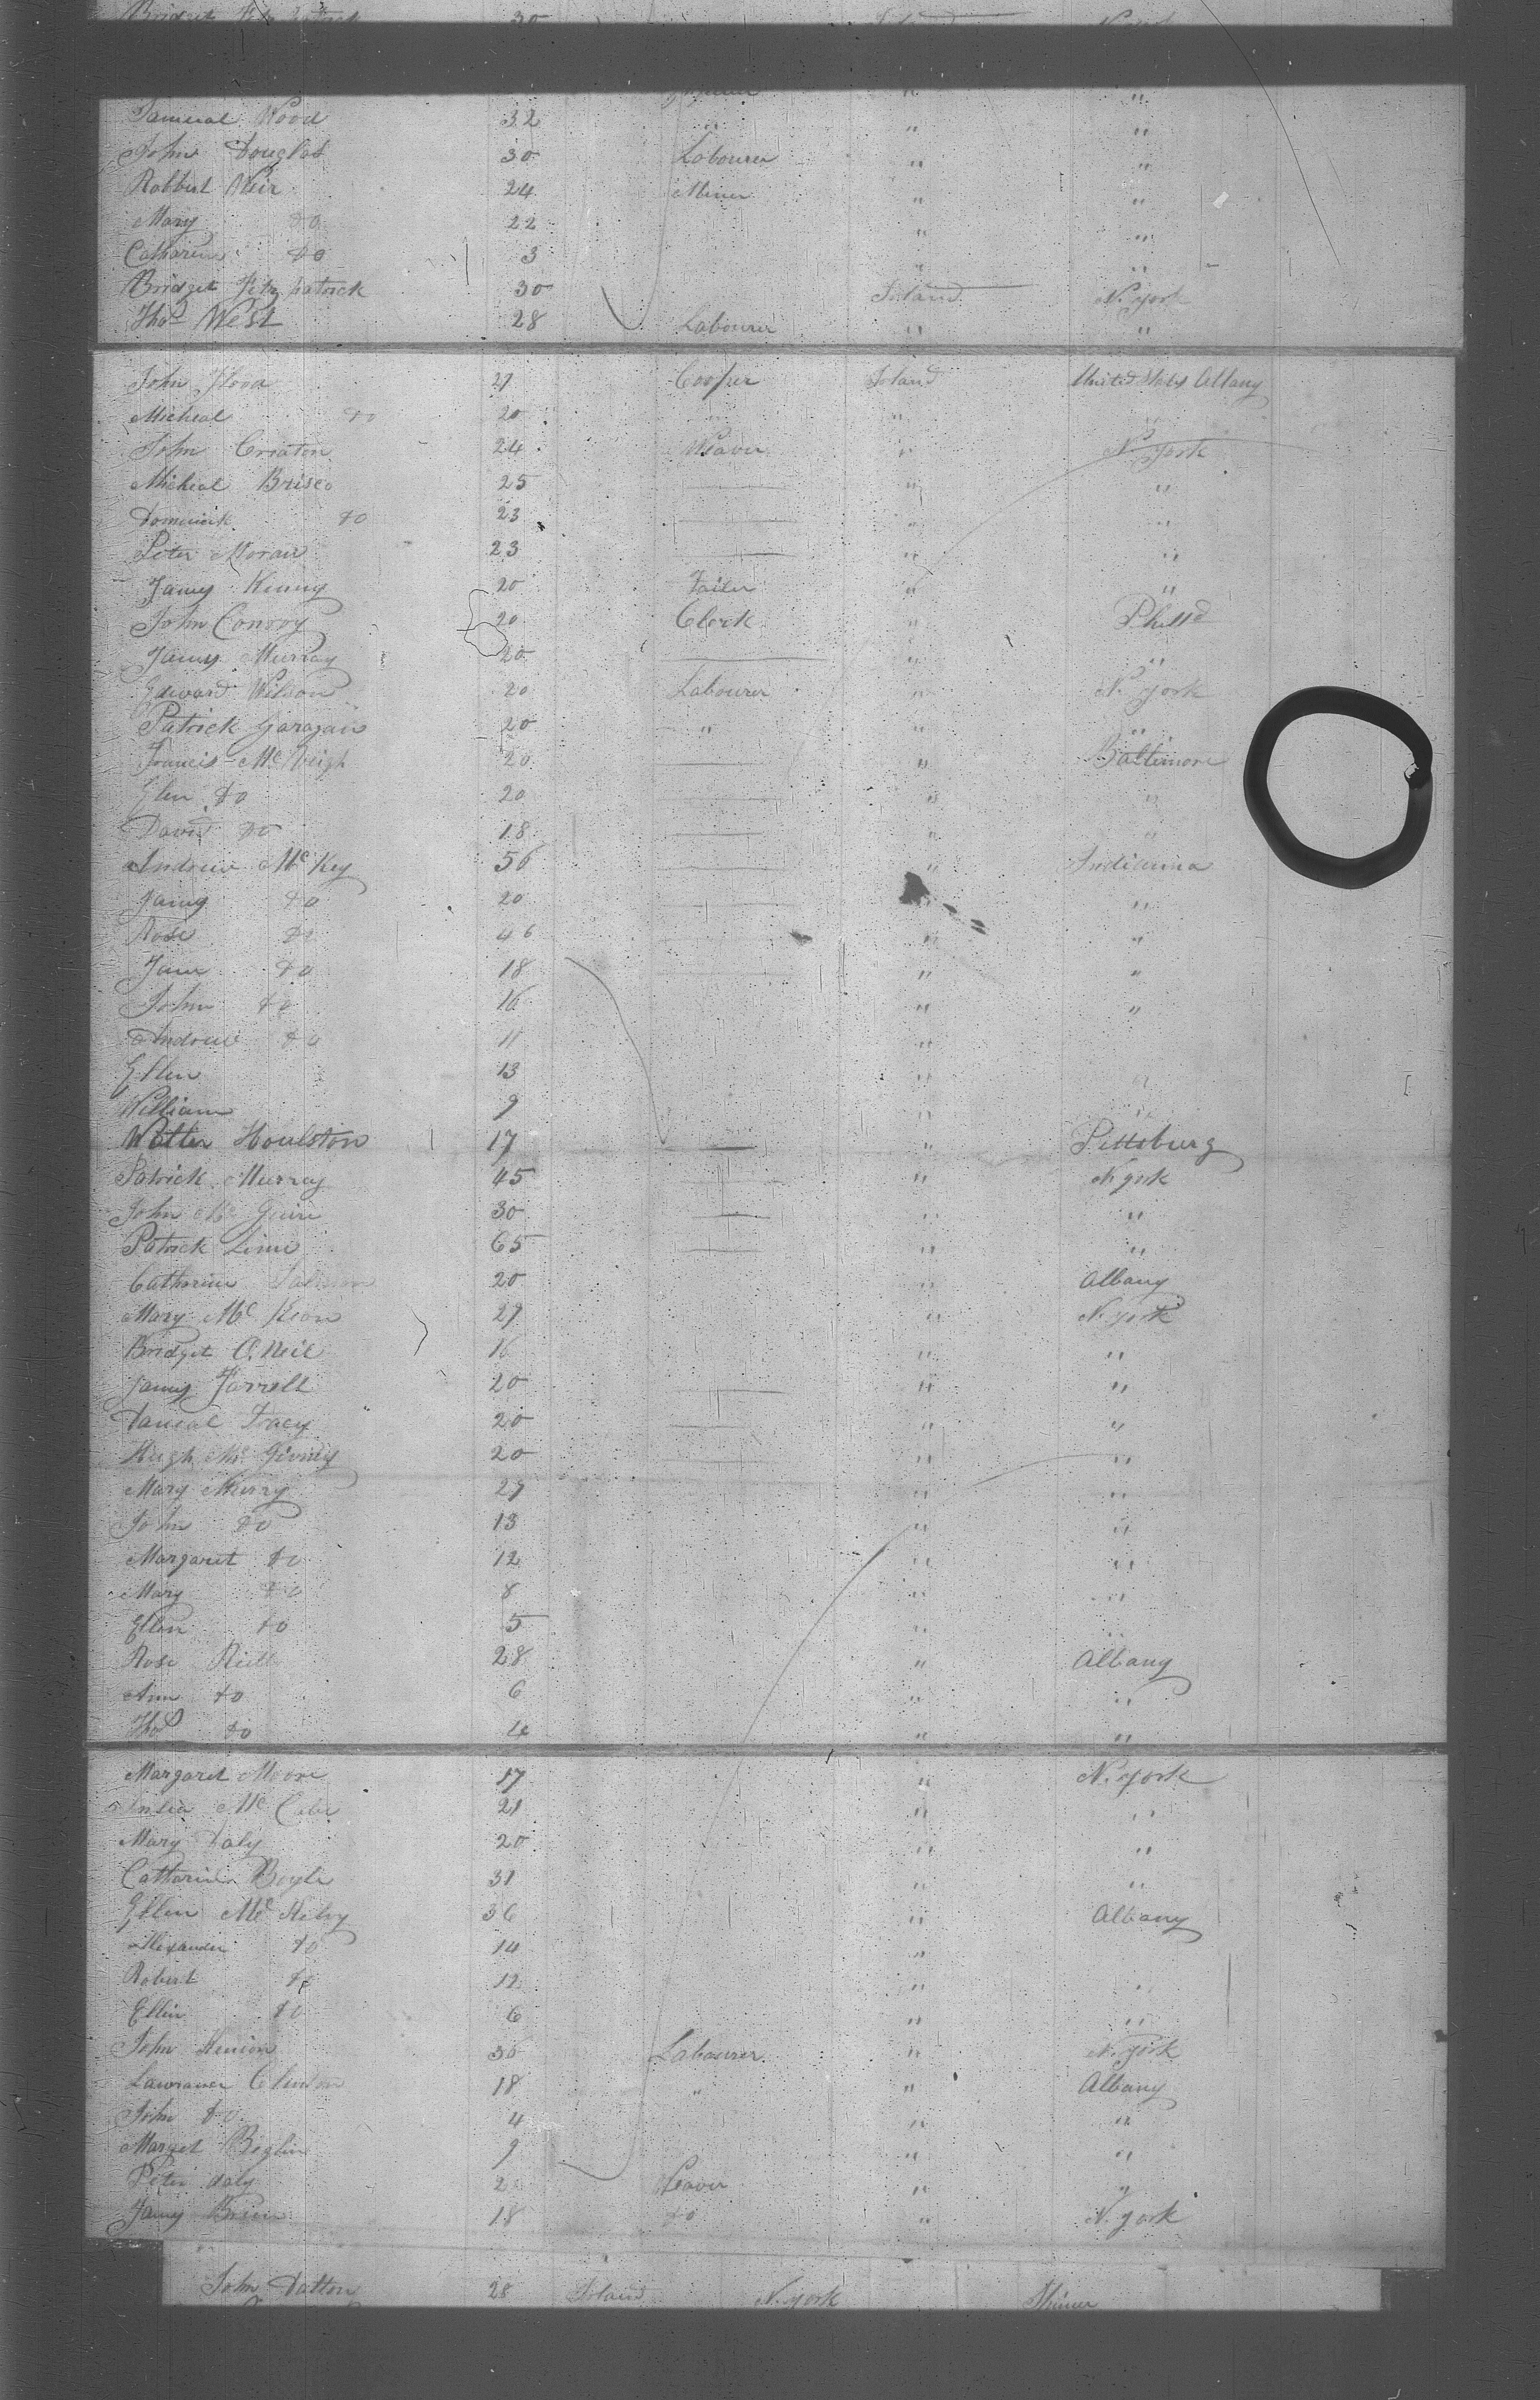 Bridget Fitz patrick 30 Ireland N. york
Samueal Wood 32 " " "
John Douglas 30 Labourer " "
Robbert Weir 24 Miner " "
Mary do 22 " "
Catharine do 3 " "
Bridget Fitz patrick 30 Ireland N. york
Thos West 28 Labourer " "
John Flood 27 Cooper Ireland United States Albany
Micheal do 20 " "
John Creaton 24 Weaver " N. york
Micheal Brisco 25 " "
Domenick do 23 " "
Peter Moran 23 " "
James Kenny 20 Tailer " "
John Conroy 20 Clerk " Philld
James Murray 20 " "
Edward Wilson 20 Labourer " N. york
Patrick Garagan 20 " " "
Francis Mc Veigh 20 " Baltimore
Elen do 20 " "
David do 18 " "
Andrew Mc Key 56 " Indianna
James do 20 " "
Rose do 46 " "
Jane do 18 " "
John do 16 " "
Andrew do 11 "
Ellen 13 " "
William 9 " "
Walter Houlston 17 " Pittsburg
Patrick Murray 45 " N york
John Mc Guire 30 " "
Patrick 65 " "
Catharine 20 " Albany
Mary Mc Keon 27 " N. york
Bridget O, Neil 16 " "
James Farrell 20 " "
Daneal Tracy 20 " "
Hugh Mc 20 " "
Mary Murry 27 " "
John do 13 " "
Margaret do 12 " "
Mary do 8 " "
Ellen do 5 " "
Rose 28 " Albany
Ann do 6 " "
Thos do 4 " "
Margaret Moore 17 " N. york
Mc Cabe 21 " "
Mary Daly 20 " "
Catharine Boyle 31 " "
Ellen Mc 36 " Albany
Alexander do 14 "
Robert do 12 " "
Ellin do 6 " "
John 36 Labourer " N. york
Lawrance Clinton 18 " " Albany
John do 4 " "
Margret 9 " "
Peter daly Weaver " "
James 18 do " N. york
John Dalton 28 Ireland N. york